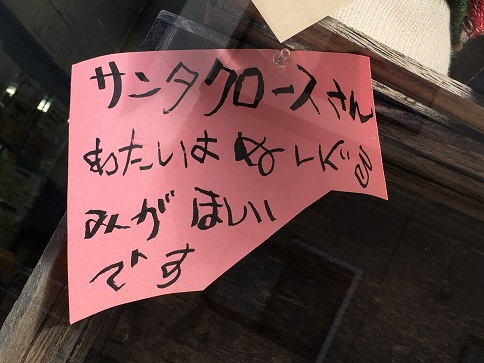 サンタクロースさん
わたいは ぬいぐる
みがほしい
です